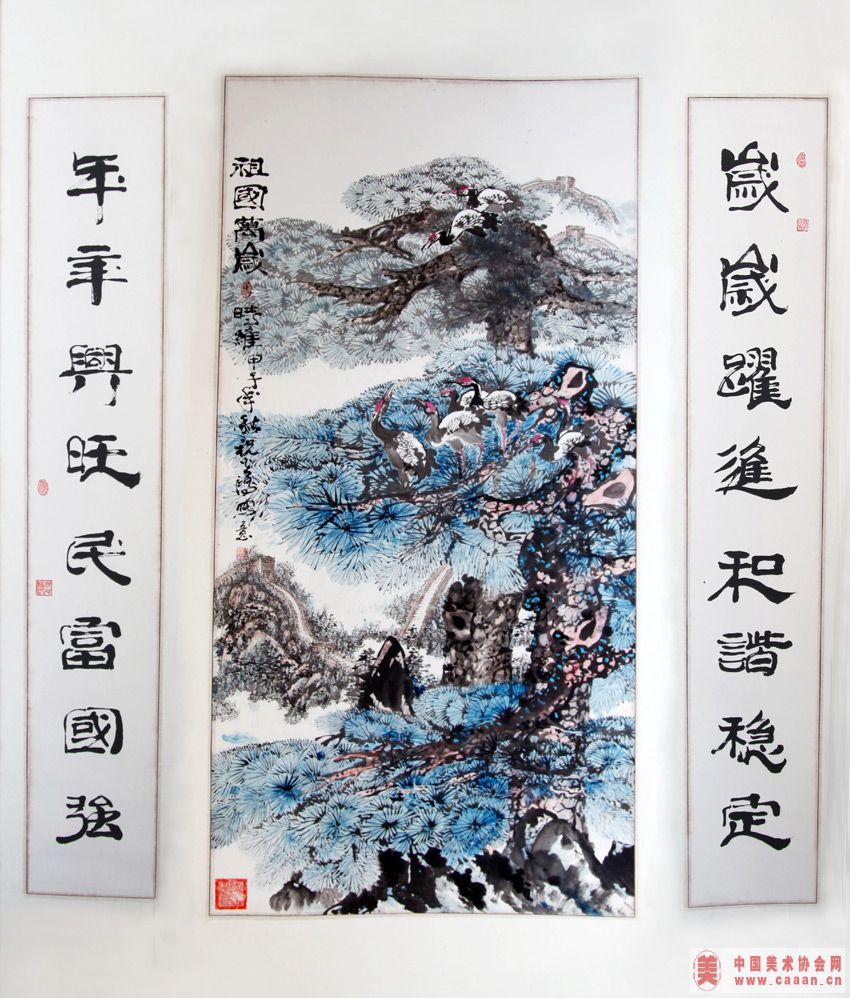 歲歲躍進和諧稳定
祖國萬歲
甲子年
年年興旺民富國强
美 中国美术协会网
www.caaan.cn